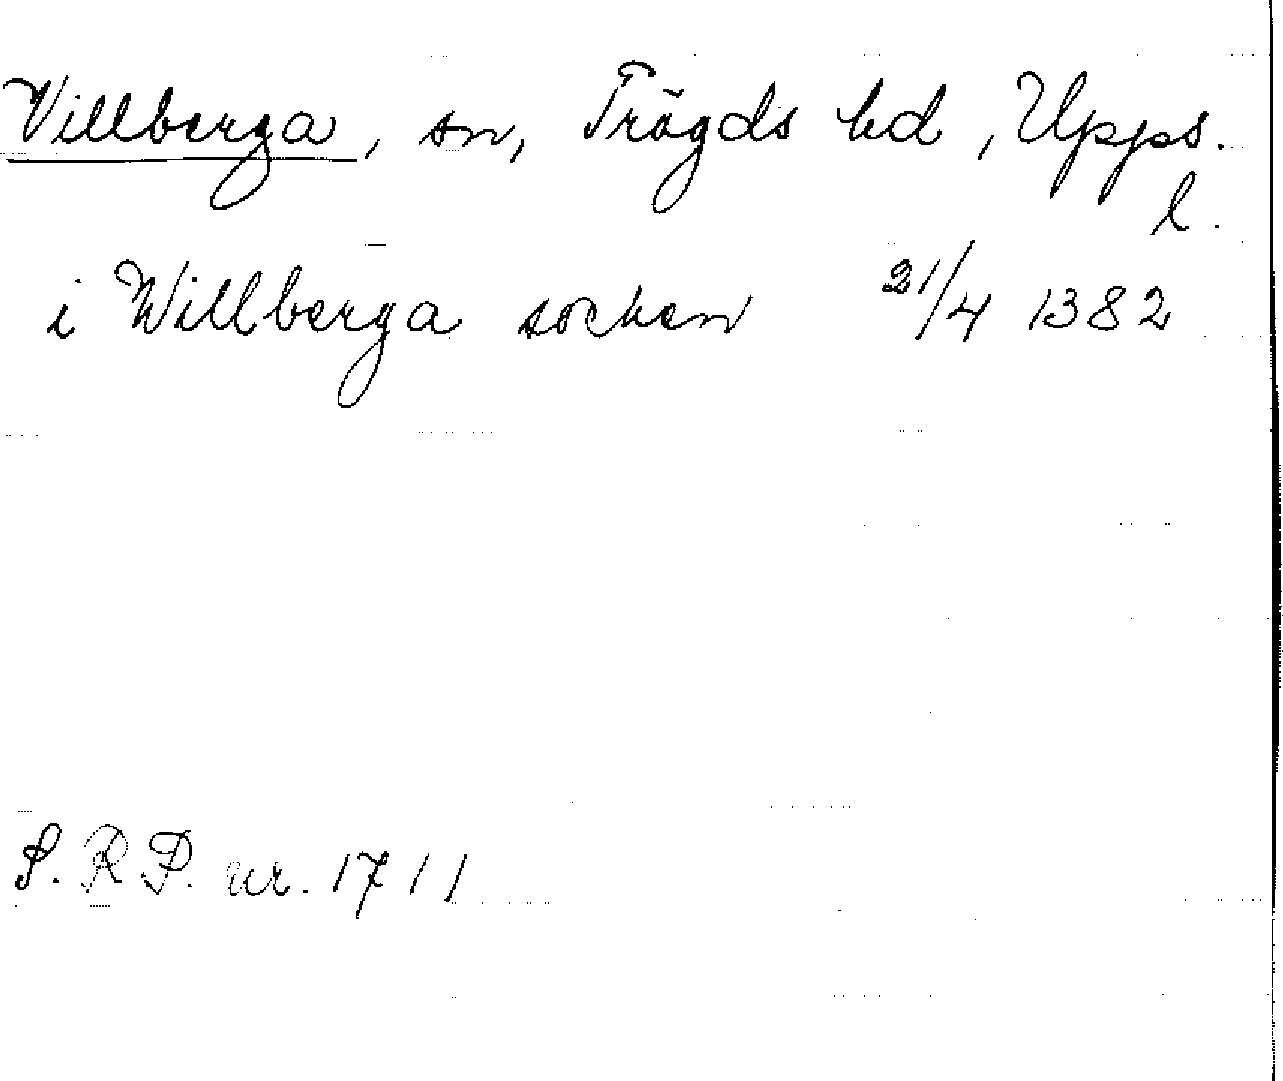 Villberga, sn, Trögds hd, Upps.
l.
i Willberga sochen 21/4 1382
S. R P. nr. 1711